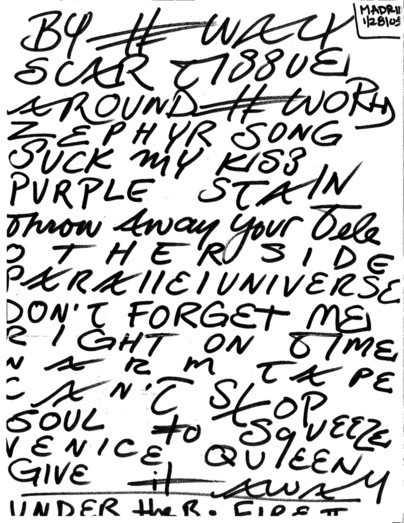 MADRID
1/28/03
BY # WAY
SCAR TISSUE
AROUND # WORLD
ZEPHYR SONG
SUCK MY KISS
PURPLE STAIN
Throw Away Your Tele
OTHERSIDE
PARALLEL UNIVERSE
DON'T FORGET ME
RIGHT ON TIME
WARM TAPE
CAN'T STOP
SOUL to SQUEEZE
VENICE QUEEN
GIVE it AWAY
UNDER the R. FIRE II